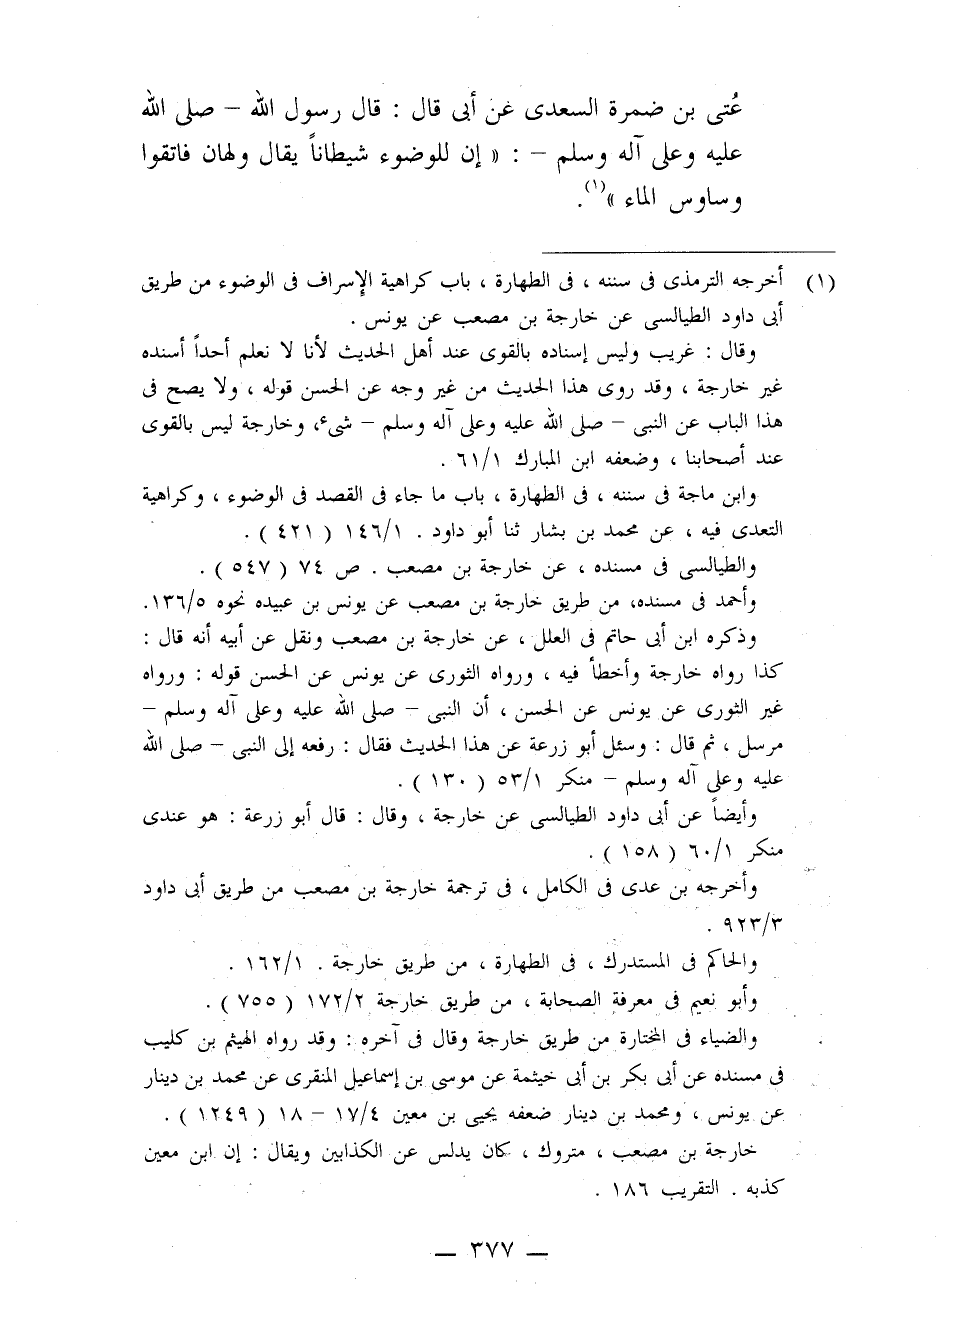 عُتى بن ضمرة السعدى عن أبى قال : قال رسول الله – صلى الله
عليه وعلى آله وسلم – : « إن للوضوء شيطاناً يقال ولهان فاتقوا
وساوس الماء »(١).
(١) أخرجه الترمذى فى سننه ، فى الطهارة ، باب كراهية الإسراف فى الوضوء من طريق
أبى داود الطيالسى عن خارجة بن مصعب عن يونس .
وقال : غريب وليس إسناده بالقوى عند أهل الحديث لأنا لا نعلم أحداً أسنده
غير خارجة ، وقد روى هذا الحديث من غير وجه عن الحسن قوله ، ولا يصح فى
هذا الباب عن النبى – صلى الله عليه وعلى آله وسلم – شىء، وخارجة ليس بالقوى
عند أصحابنا ، وضعفه ابن المبارك ٦١/١ .
وابن ماجة فى سننه ، فى الطهارة ، باب ما جاء فى القصد فى الوضوء ، وكراهية
التعدى فيه ، عن محمد بن بشار ثنا أبو داود . ١٤٦/١ ( ٤٢١ ) .
والطيالسى فى مسنده ، عن خارجة بن مصعب . ص ٧٤ ( ٥٤٧ ) .
وأحمد فى مسنده، من طريق خارجة بن مصعب عن يونس بن عبيده نحوه ١٣٦/٥.
وذكره ابن أبى حاتم فى العلل ، عن خارجة بن مصعب ونقل عن أبيه أنه قال :
كذا رواه خارجة وأخطأ فيه ، ورواه الثورى عن يونس عن الحسن قوله : ورواه
غير الثورى عن يونس عن الحسن ، أن النبى – صلى الله عليه وعلى آله وسلم –
مرسل ، ثم قال : وسئل أبو زرعة عن هذا الحديث فقال : رفعه إلى النبى – صلى الله
عليه وعلى آله وسلم – منكر ٥٣/١ ( ١٣٠ ) .
وأيضاً عن أبى داود الطيالسى عن خارجة ، وقال : قال أبو زرعة : هو عندى
منكر ٦٠/١ ( ١٥٨ ) .
وأخرجه بن عدى فى الكامل ، فى ترجمة خارجة بن مصعب من طريق أبى داود
٩٢٣/٣ .
والحاكم فى المستدرك ، فى الطهارة ، من طريق خارجة . ١٦٢/١ .
وأبو نعيم فى معرفة الصحابة ، من طريق خارجة ١٧٢/٢ ( ٧٥٥ ) .
والضياء فى المختارة من طريق خارجة وقال فى آخره : وقد رواه الهيثم بن كليب
فى مسنده عن أبى بكر بن أبى خيثمة عن موسى بن إسماعيل المنقرى عن محمد بن دينار
عن يونس ، ومحمد بن دينار ضعفه يحيى بن معين ١٧/٤ – ١٨ ( ١٢٤٩ ) .
خارجة بن مصعب ، متروك ، كان يدلس عن الكذابين ويقال : إن ابن معين
كذبه . التقريب ١٨٦ .
— ٣٧٧ —